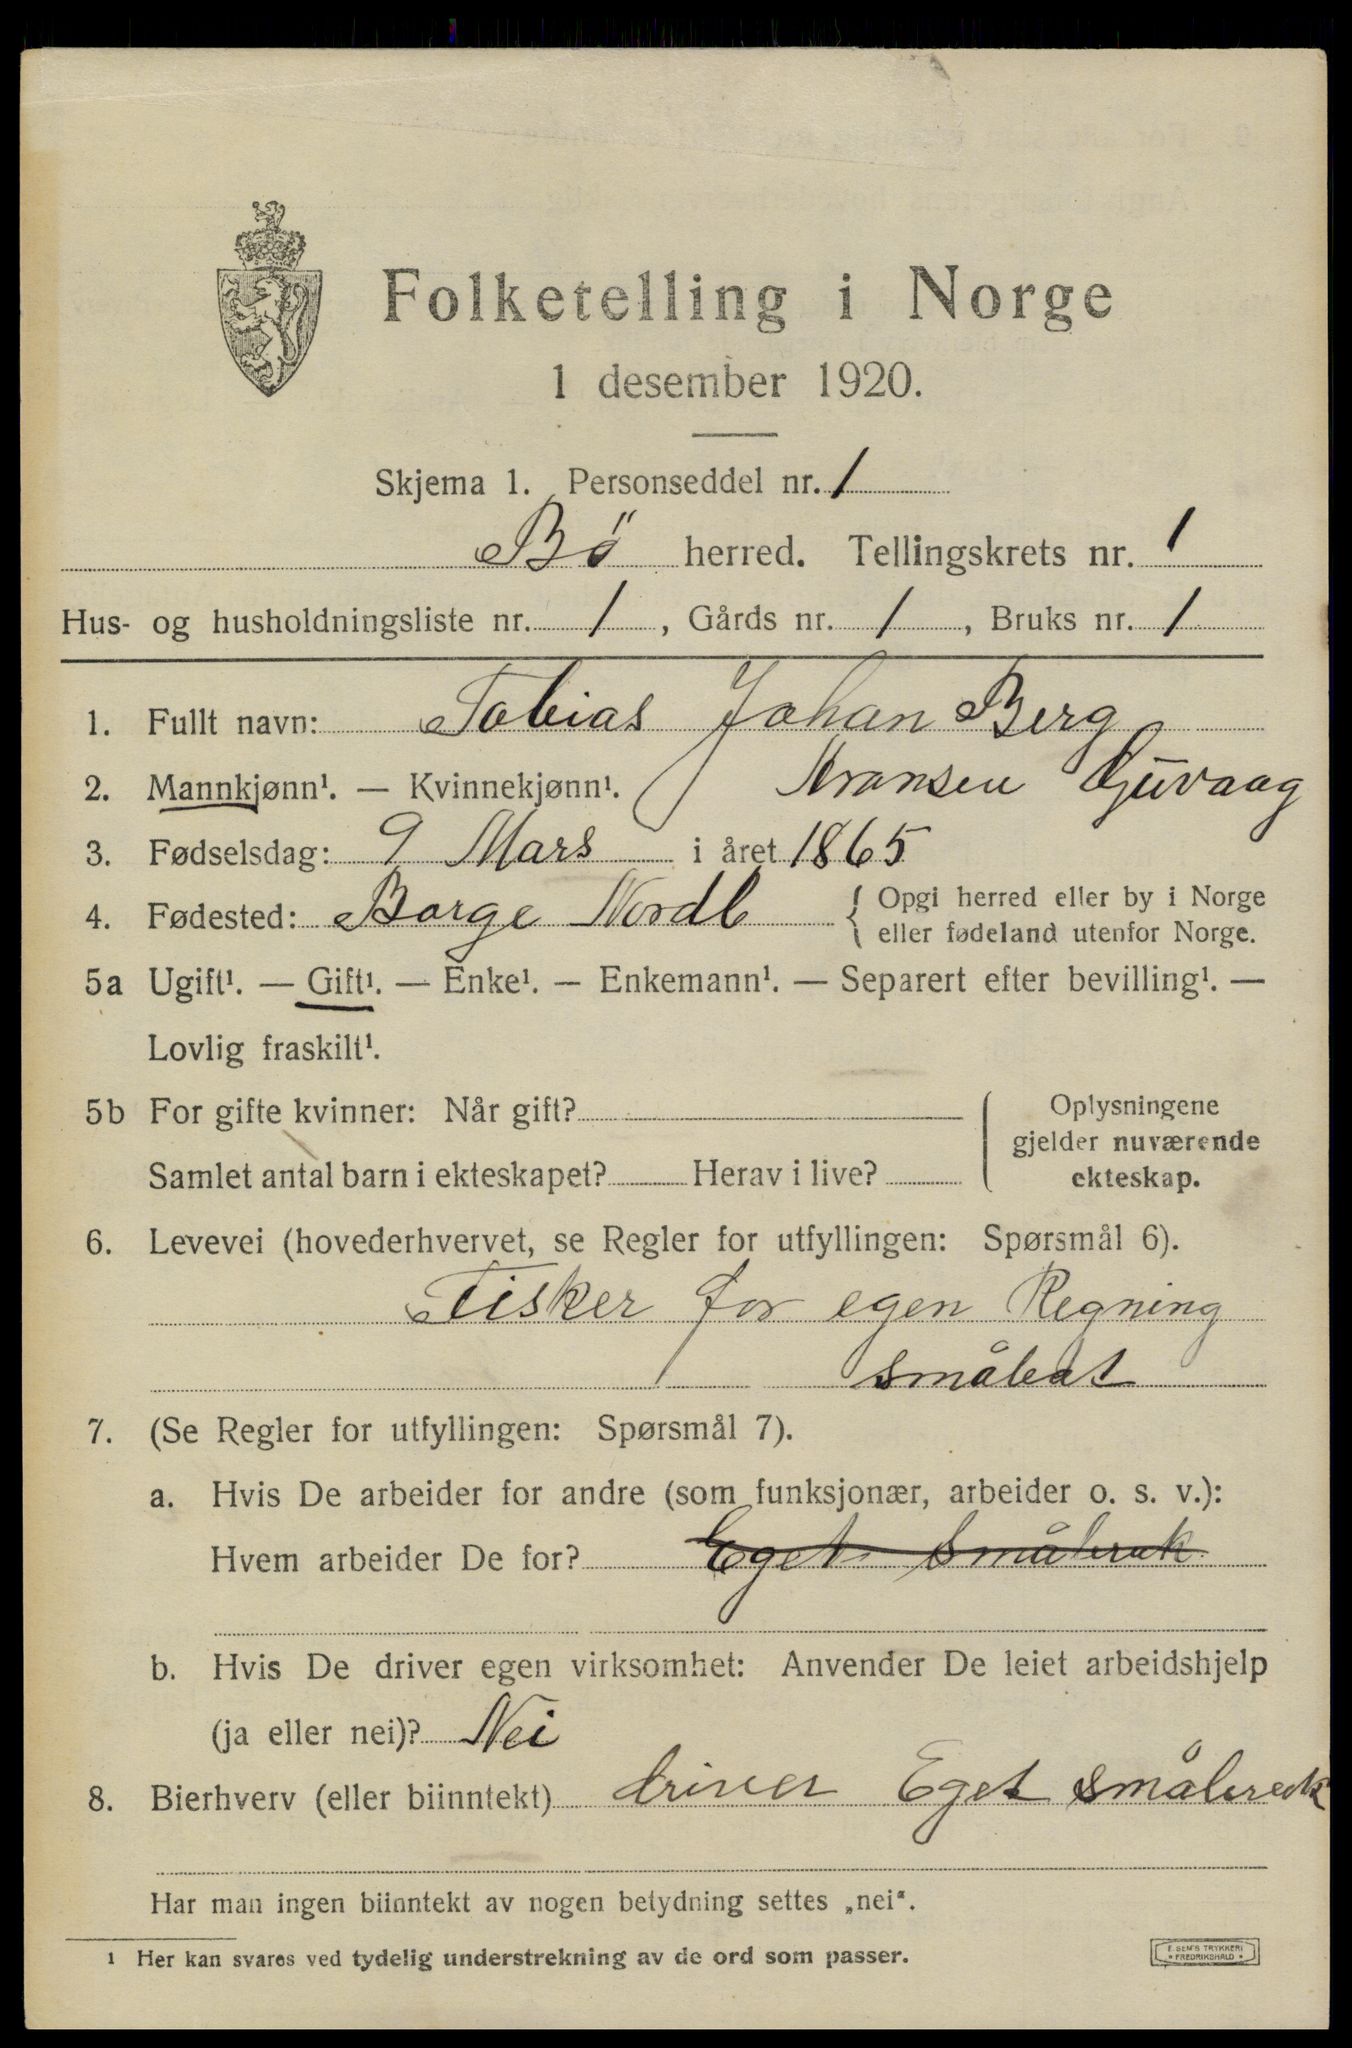 Folketelling i Norge
1 desember 1920.
Skjema 1. Personseddel nr. 1
Bö herred. Tellingskrets nr. 1
Hus- og husholdningsliste nr. 1, Gårds nr. 1, Bruks nr. 1
1. Fullt navn: Tobias Johan Berg
2. Mannkjønn¹. — Kvinnekjønn¹. Kransen Guvaag
3. Fødselsdag: 9 Mars i året 1865
4. Fødested: Borge Nordl { Opgi herred eller by i Norge
eller fødeland utenfor Norge.
5a Ugift¹. — Gift¹. — Enke¹. — Enkemann¹. — Separert efter bevilling¹. —
Lovlig fraskilt¹.
5b For gifte kvinner: Når gift?
Samlet antal barn i ekteskapet? Herav i live?
Oplysningene
gjelder nuværende
ekteskap.
6. Levevei (hovederhvervet, se Regler for utfyllingen: Spørsmål 6).
Fisker for egen Regning
småbåt
7. (Se Regler for utfyllingen: Spørsmål 7).
a. Hvis De arbeider for andre (som funksjonær, arbeider o. s. v.):
Hvem arbeider De for? Eget Småbruk
b. Hvis De driver egen virksomhet: Anvender De leiet arbeidshjelp
(ja eller nei)? Nei
8. Bierhverv (eller biinntekt) driver Eget småbruk
Har man ingen biinntekt av nogen betydning settes „nei".
¹ Her kan svares ved tydelig understrekning av de ord som passer.
E. SEM'S TRYKKERI
• FREDRIKSHALD •